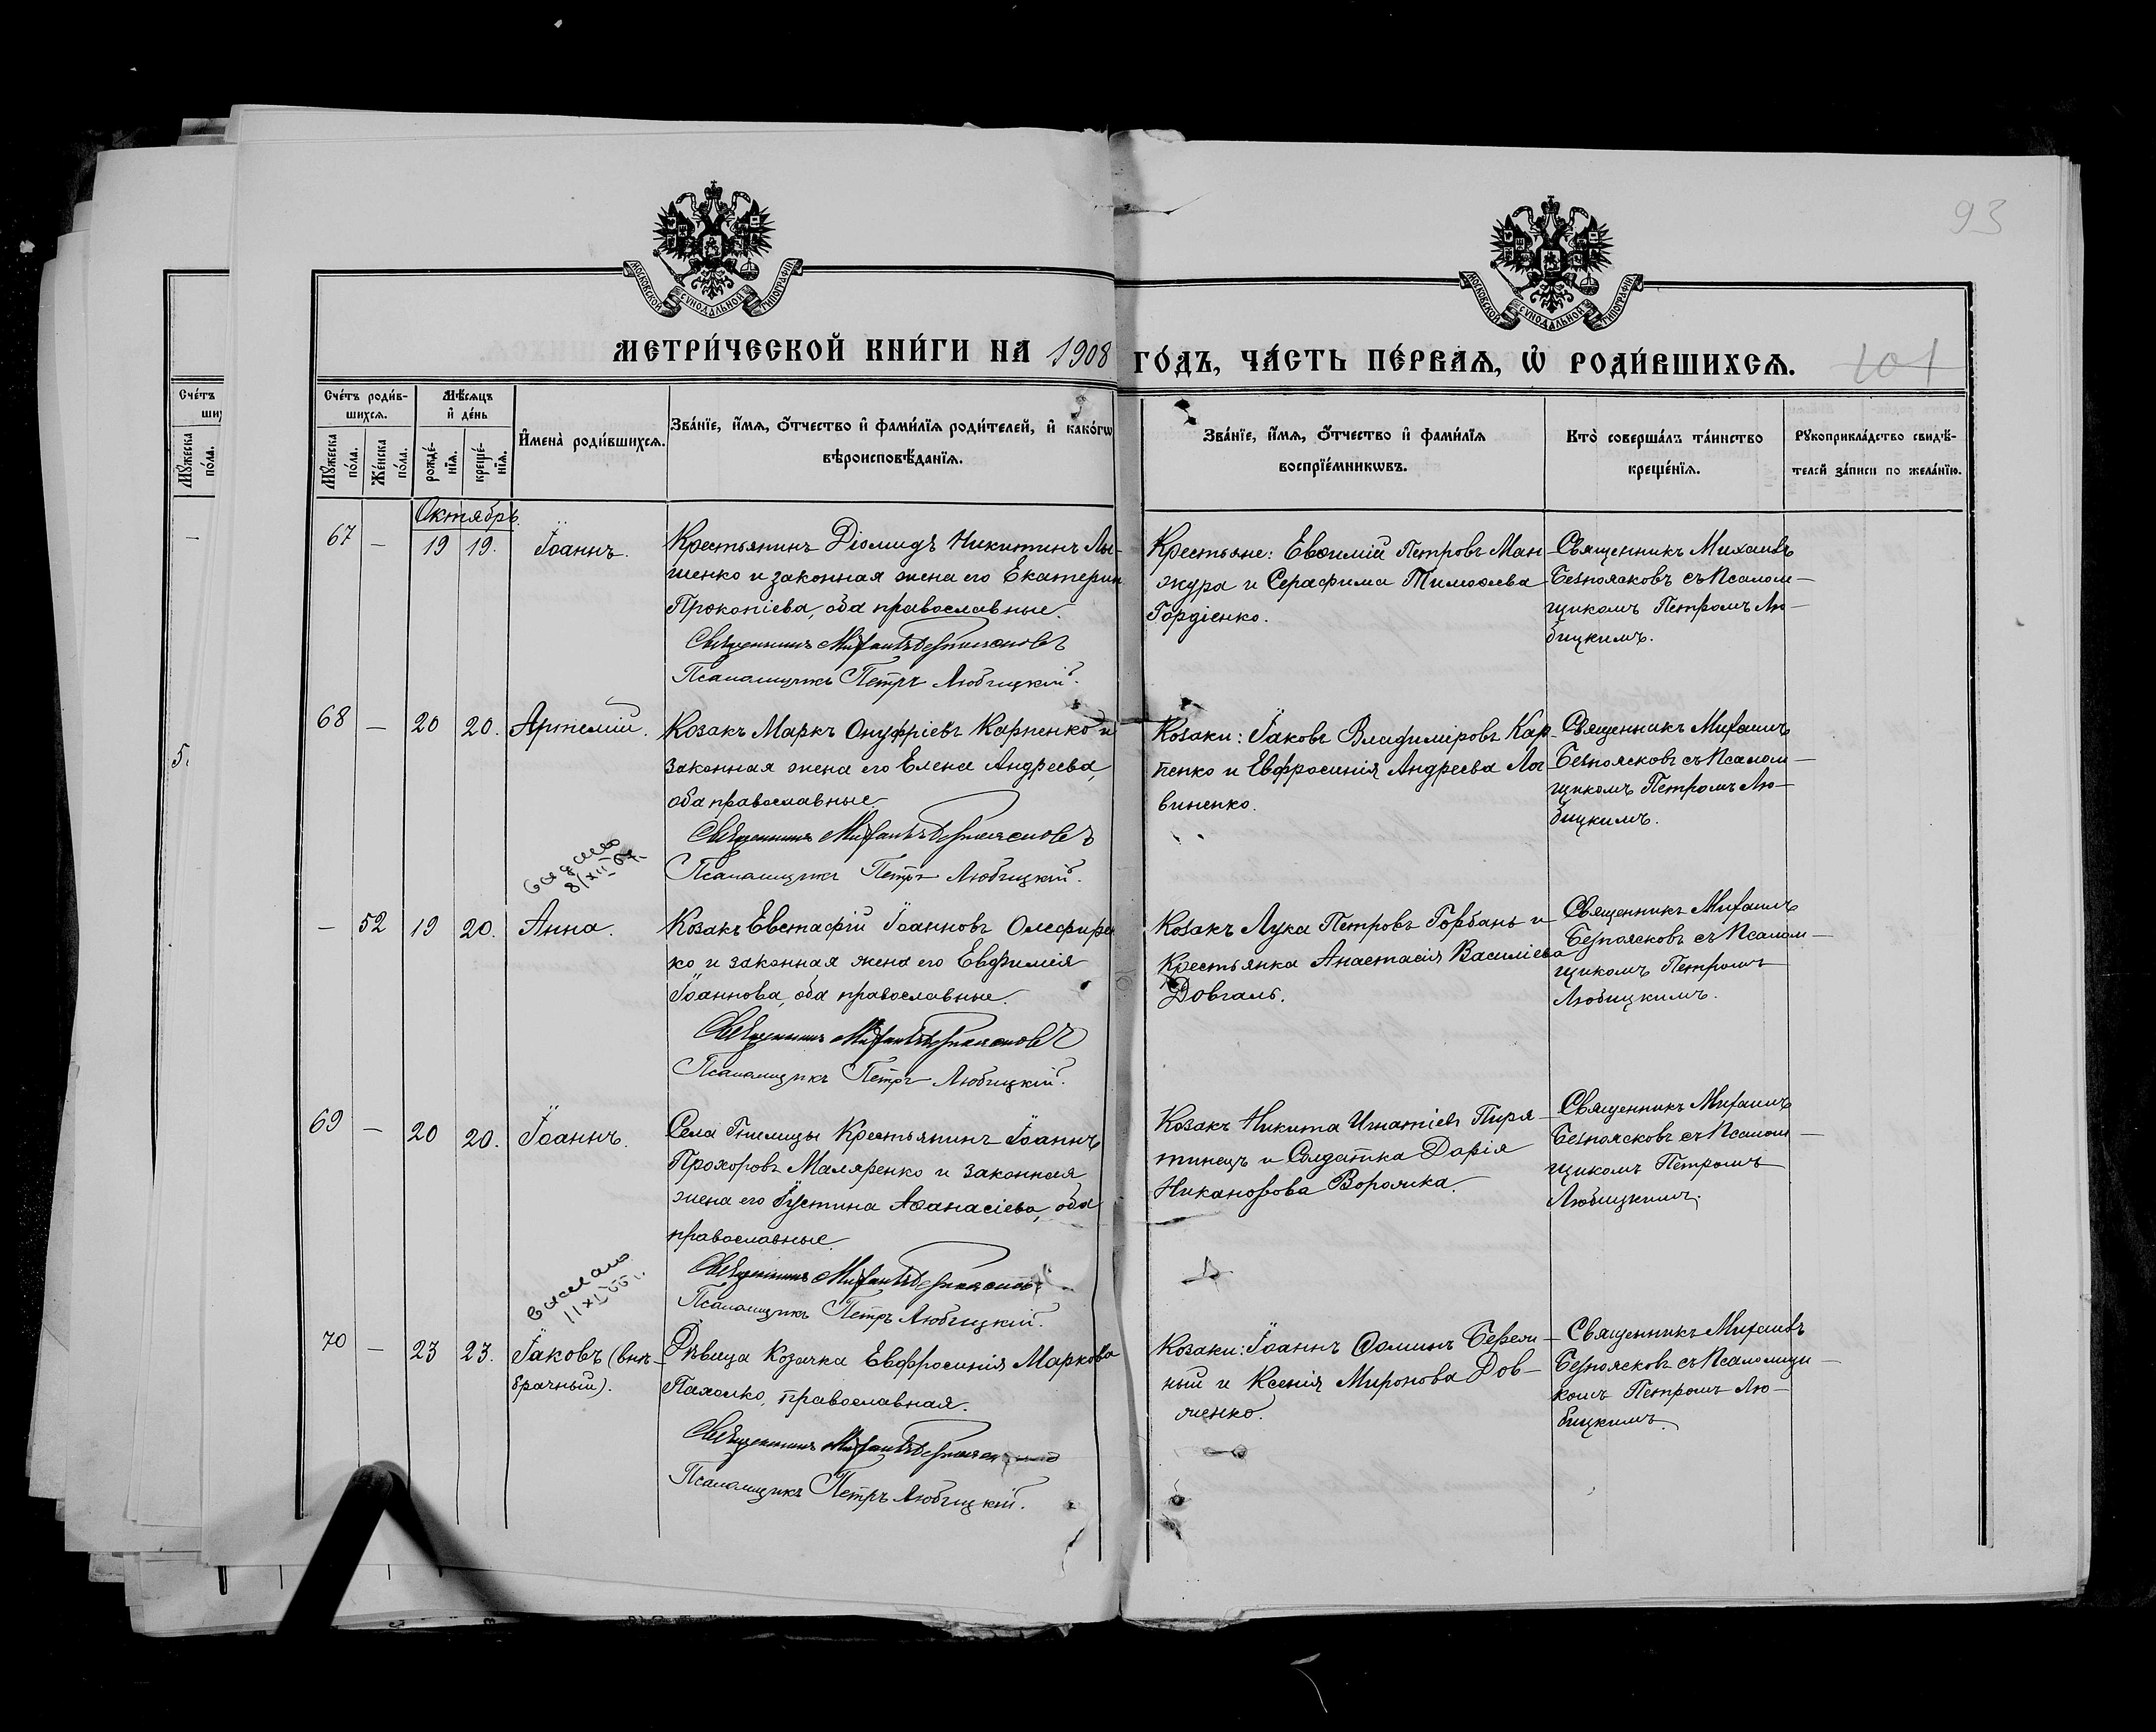 93
МОСКОВСКОЙ СУНОДАЛЬНОЙ ТИПОГРАФІИ
МОСКОВСКОЙ СУНОДАЛЬНОЙ ТИПОГРАФІИ
МЕТРИ́ЧЕСКОЙ КНИ́ГИ НА 1908 ГО́ДЪ, ЧА́СТЬ ПЕ́РВАѦ, Ѡ РОДИ́ВШИХСѦ.
101
Сче́тъ
ших
Мꙋ́жеска по́ла.
Сче́тъ роди́в-
шихсѧ.
Мѣ́сѧцъ
и҆ де́нь
Мꙋ́жеска по́ла.
Же́нска по́ла.
рожде́-
нїѧ.
креще́-
нїѧ.
И҆мена̀ роди́вшихсѧ.
Зва́нїе, и҆́мѧ, ѻ҆́тчество и҆ фами́лїѧ роди́телей, и҆ како́гѡ
вѣроисповѣ́данїѧ.
Зва́нїе, и҆́мѧ, ѻ҆́тчество и҆ фами́лїѧ
воспрїе́мникѡвъ.
Кто̀ соверша́лъ та́инство
креще́нїѧ.
Рꙋкоприкла́дство свидѣ́-
телей за́писи по жела́нїю.
Октябрь.
67 — 19 19. Іоаннъ.
Крестьянинъ Діомидъ Никитинъ Лы-
шенко и законная жена его Екатерин
Прокопіева, оба православные.
Священникъ Михаилъ Безпоясковъ
Псаломщикъ Петръ Любицкій.
Крестьяне: Евѳимій Петровъ Ман-
жура и Серафима Тимоѳеева
Гордіенко.
Священникъ Михаилъ
Безпоясковъ съ Псалом-
щикомъ Петромъ Лю-
бицкимъ.
68 — 20 20. Артемій.
Козакъ Маркъ Онуфріевъ Карпенко и
законная жена его Елена Андреева,
оба православные.
Священникъ Михаилъ Безпоясковъ
Псаломщикъ Петръ Любицкій.
Козаки: Іаковъ Владиміровъ Кар-
пенко и Евфросинія Андреева Лог-
виненко.
Священникъ Михаилъ
Безпоясковъ съ Псалом-
щикомъ Петромъ Лю-
бицкимъ.
5.
8/XII
— 52 19 20. Анна.
Козакъ Евстафій Іоанновъ Олефирен
ко и законная жена его Евфимія
Іоаннова, оба православные.
Священникъ Михаилъ Безпоясковъ
Псаломщикъ Петръ Любицкій.
Козакъ Лука Петровъ Горбань и
Крестьянка Анастасія Василіева
Довгаль.
Священникъ Михаилъ
Безпоясковъ съ Псалом-
щикомъ Петромъ
Любицкимъ.
69 — 20 20. Іоаннъ.
Села Гнилицы Крестьянинъ Іоаннъ
Прохоровъ Маляренко и законная
жена его Іустина Аѳанасіева, оба
православные.
Священникъ Михаилъ Безпоясковъ
Псаломщикъ Петръ Любицкій.
Козакъ Никита Игнатіевъ Пиря-
тинецъ и Солдатка Дарія
Никанорова Ворожка.
Священникъ Михаилъ
Безпоясковъ съ Псалом-
щикомъ Петромъ
Любицкимъ.
выслано
70 — 23 23. Іаковъ (внѣ-
брачный).
Дѣвица Козачка Евфросинія Маркова
Пахолко, православная.
Священникъ Михаилъ
Псаломщикъ Петръ Любицкій.
Козаки: Іоаннъ Ѳоминъ Бережн-
ный и Ксенія Миронова Дов-
женко.
Священникъ Михаилъ
Безпоясковъ съ Псаломщи-
комъ Петромъ Лю-
бицкимъ.